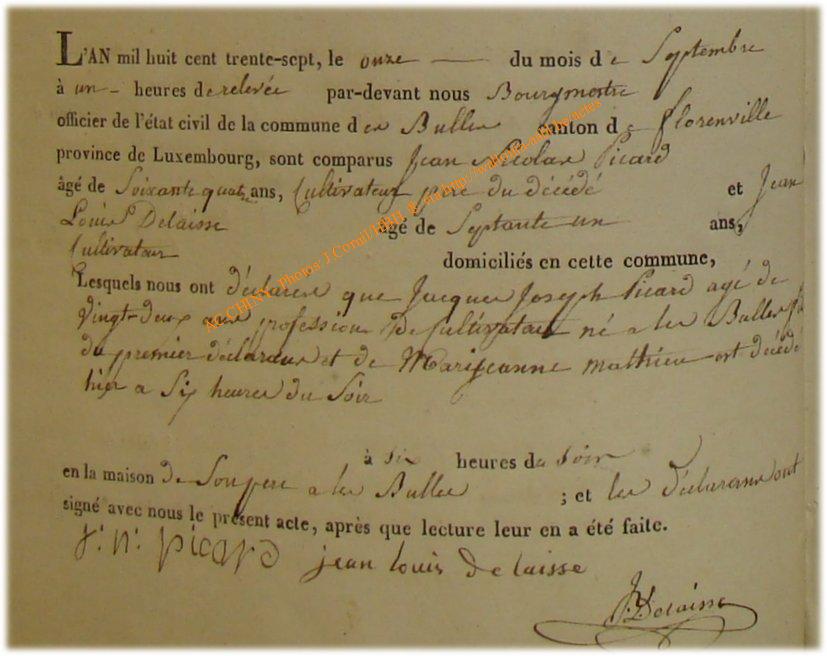 L'AN mil huit cent trente-sept, le onze du mois de Septembre
à un heures de relevée par-devant nous Bourgmestre
officier de l'état civil de la commune der Bulles canton de florenville
province de Luxembourg, sont comparus Jean Nicolas Picard
âgé de Soixante quatre ans, Cultivateur père du décédé et Jean
Louis Delaisse âgé de Septante un ans,
Cultivateur
domiciliés en cette commune,
Lesquels nous ont déclarer que Jacques Joseph Picard agé de
vingt-deux ans profession de Cultivateur né a les Bulles fils
du premier déclarant et de Marijeanne mathieu est décédé
hier a Six heures du Soir
à six heures du Soir
en la maison de Son pere a les Bulles ; et les déclarans ont
signé avec nous le présent acte, après que lecture leur en a été faite.
j. n. picard jean louis delaisse
Delaisse
ALCHIMY Photos J Cornil HBHL &